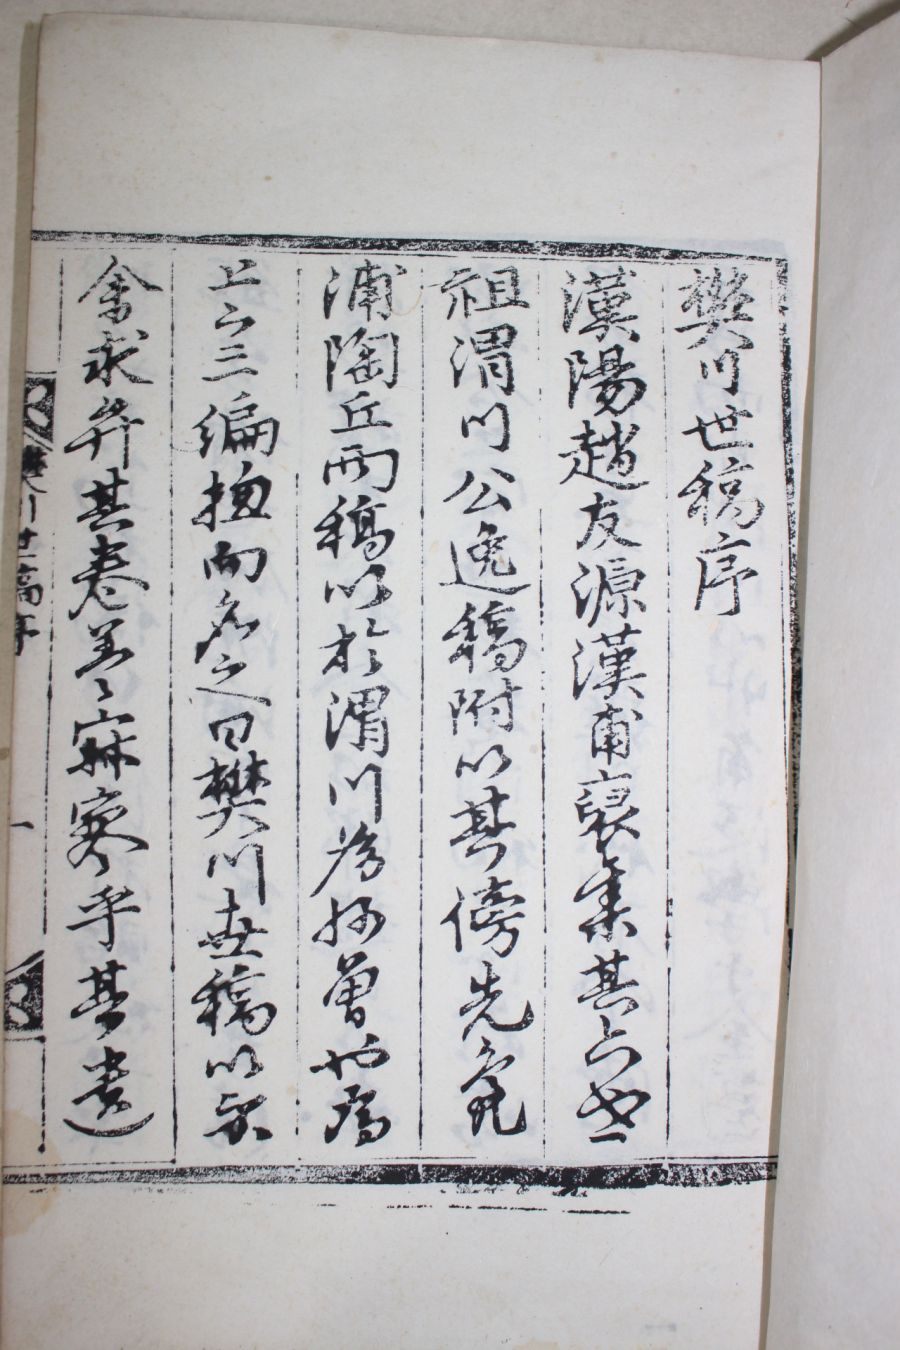 樊川世稿序
漢陽趙友源漢甫裒集其六世
祖渭川公逸稿附以其傍先龜
浦陶丘両稿以於渭川為姪曽也為
上下三編揔而名之曰樊川世稿以示
余求弁其卷羙〻寂寥乎其遺
樊川世稿序
一